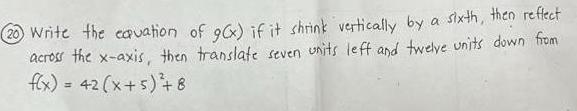 (20) Write the equation of g(x) if it shrink vertically by a sixth, then reflect
across the x-axis, then translate seven units left and twelve units down from
f(x) = 42(x+5)²+8